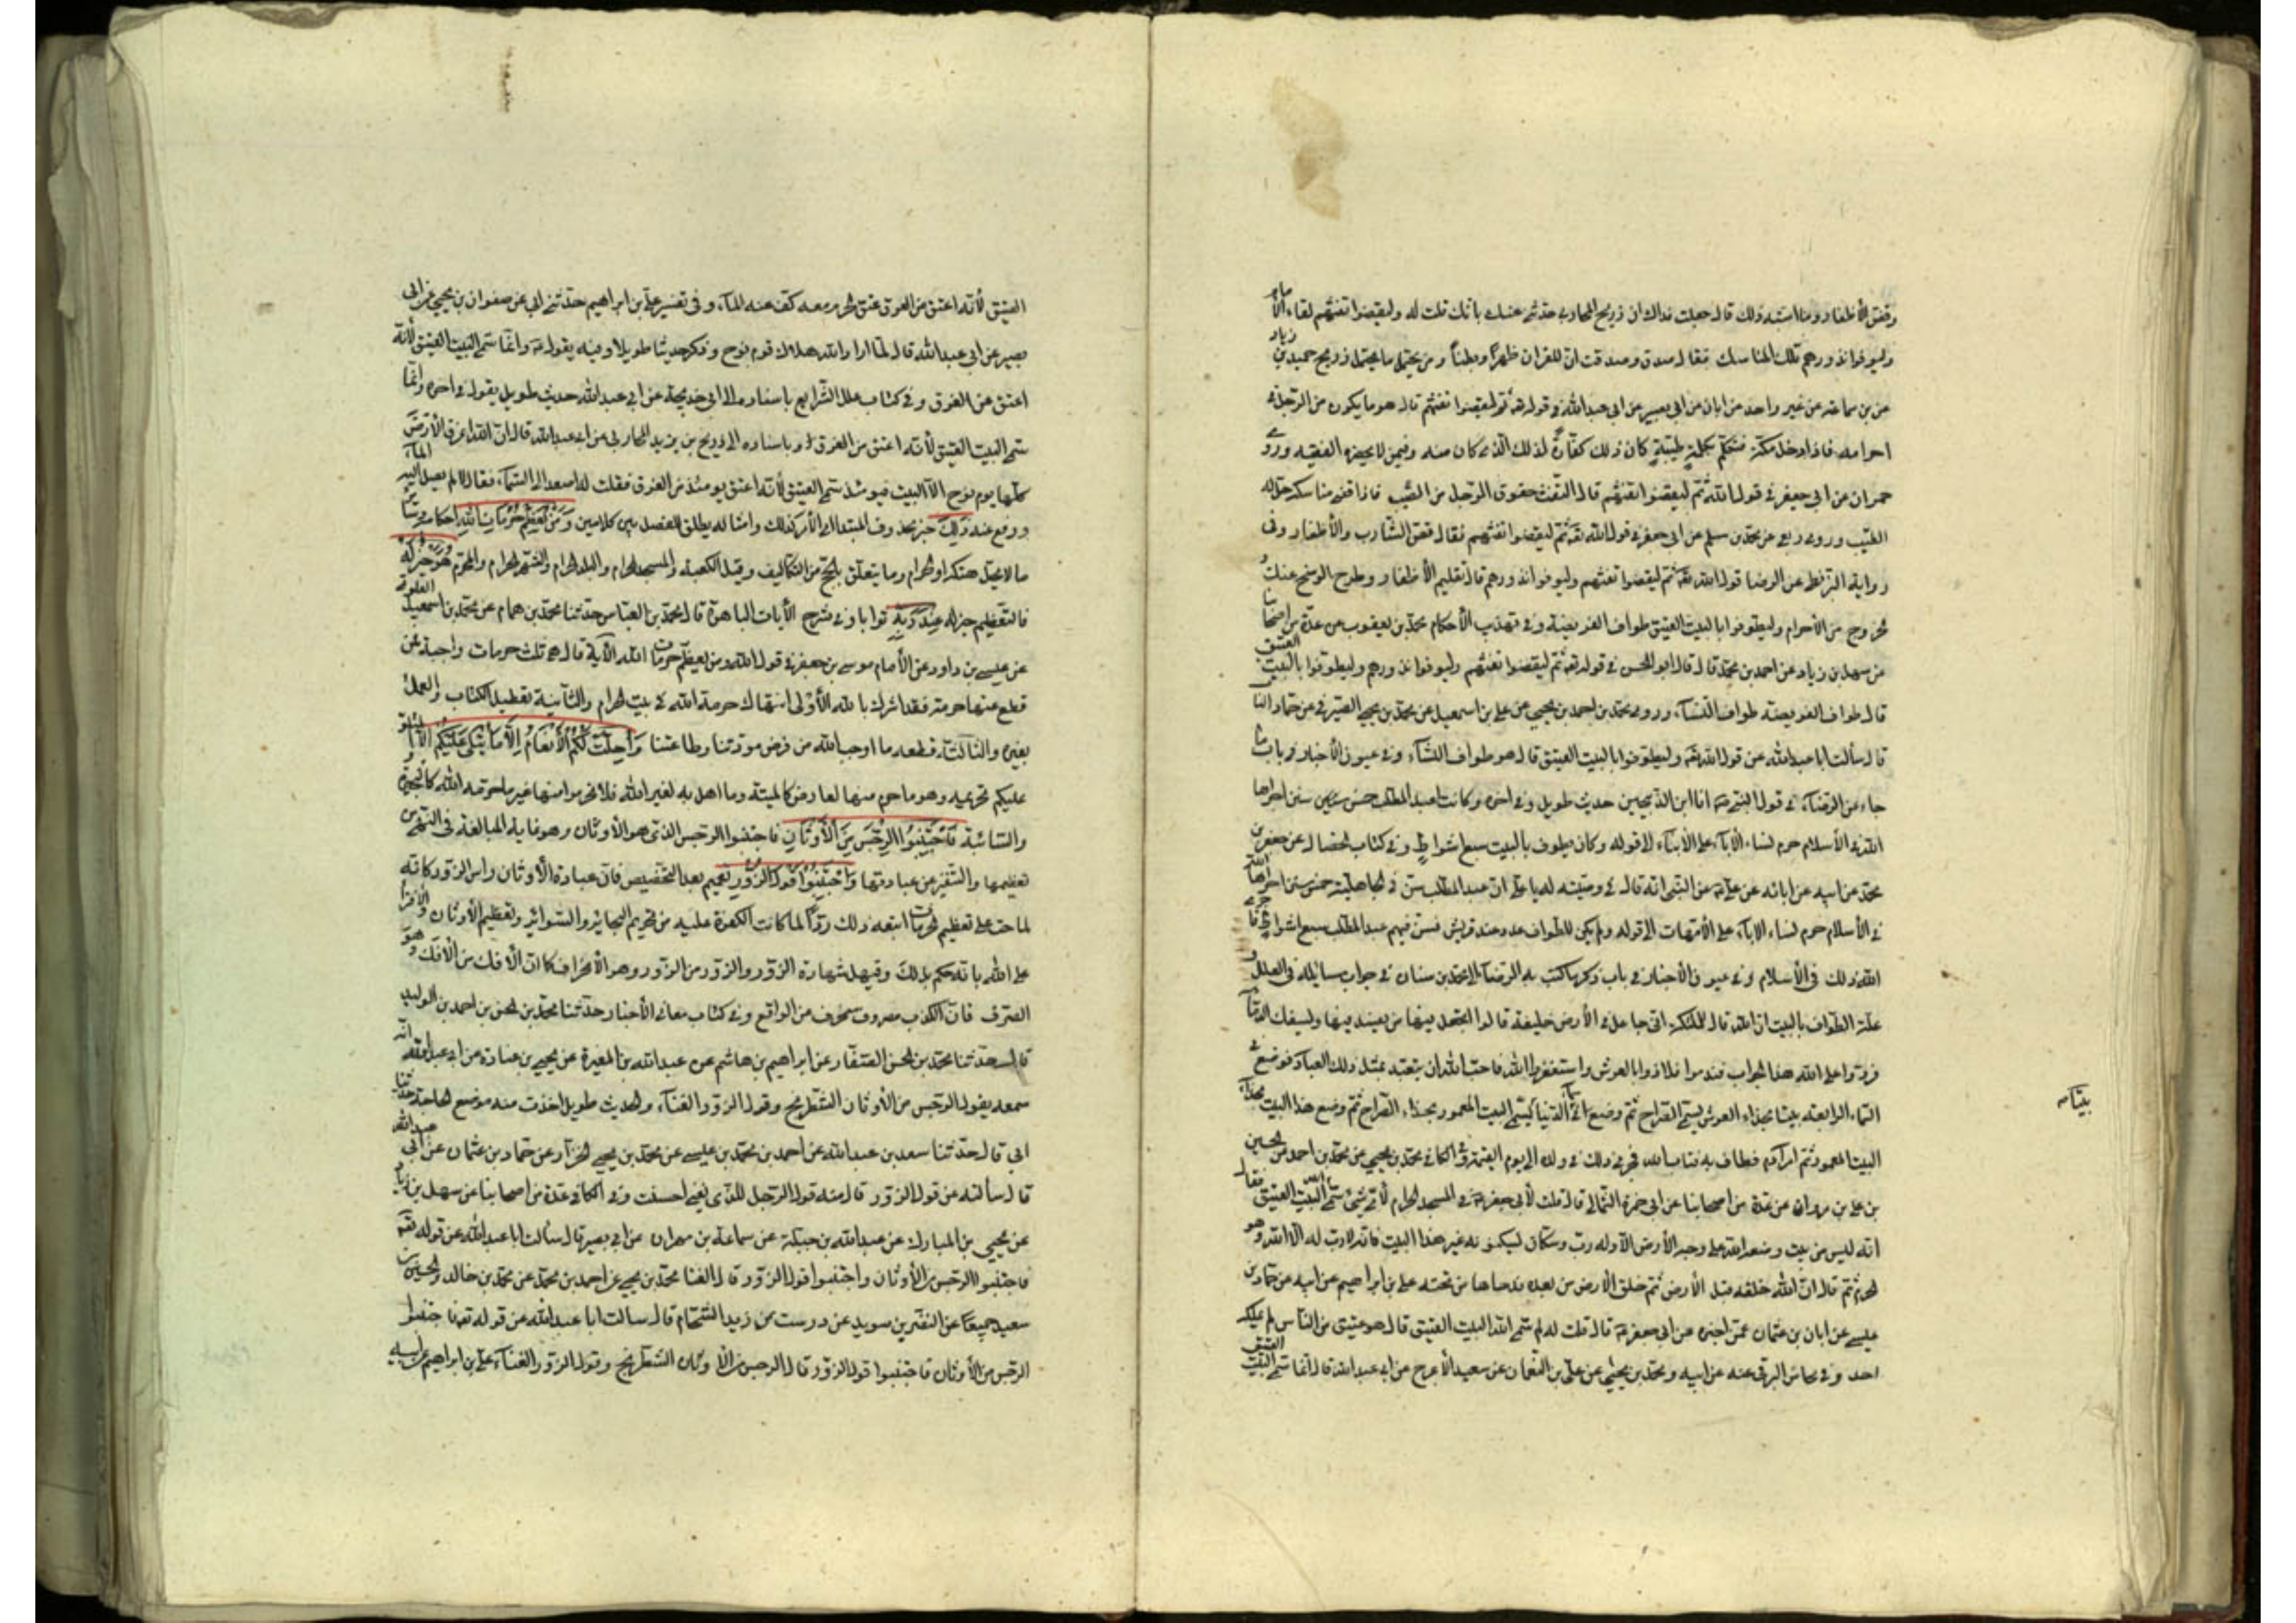 وقص الأظفار وما اشبه ذلك قال جعلت فداك ان ذريح المحاربي حدثني عنك بانك قلت له وليقضوا تفثهم لقاء الامام
وليوفوا نذورهم تلك المناسك فقال صدق وصدقت ان للقران ظهرًا وبطنًا ومن يحتمل ما يحتمل ذريح حميد بن زياد
عن بن سماعة عن غير واحد عن ابان عن ابي بصير عن ابي عبدالله في قوله تع ثم ليقضوا تفثهم قال هو ما يكون من الرجل في
احرامه فاذا دخل مكة فتكلم بكلام طيبة كان ذلك كفارة لذلك الذي كان منه وفيمن لا يحضره الفقيه وروى
حمران عن ابي جعفر في قول الله ثم ليقضوا تفثهم قال التفث حقوق الرجل من الطيب فاذا قضى مناسكه حل له
الطيب وروى ربعي عن محمد بن مسلم عن ابي جعفر في قول الله تع ثم ليقضوا تفثهم فقال قص الشارب والأظفار وفى
رواية البزنطي عن الرضا قول الله تع ثم ليقضوا تفثهم وليوفوا نذورهم قال تقليم الأظفار وطرح الوسخ عنك
الخروج من الأحرام وليطوفوا بالبيت العتيق طواف الفريضة وفي تهذيب الأحكام محمد بن يعقوب عن عدة من اصحابنا
عن سهل بن زياد عن احمد بن محمد قال قال ابو الحسن في قوله تع ثم ليقضوا تفثهم وليوفوا نذورهم وليطوفوا بالبيت العتيق
قال طواف الفريضة طواف النساء وروى محمد بن احمد بن يحيى عن علي بن اسمعيل عن محمد بن يحيى الصيرفي عن حماد الناب
قال سألت ابا عبدالله عن قول الله تع وليطوفوا بالبيت العتيق قال هو طواف النساء وفي عيون الأخبار في باب ما
جاء عن الرضا في قول النبي ص انا ابن الذبيحين حديث طويل وفي اخره وكانت لعبد المطلب خمس من سنن اجراها
الله في الأسلام حرم نساء الآباء على الابناء الى قوله وكان يطوف بالبيت سبع اشواط وفي كتاب الخصال عن جعفر بن
محمد عن ابيه عن ابائه عن علي ع عن النبي انه قال في وصيته له يا علي ان عبد المطلب سن في الجاهلية خمس سنن اجراها الله
في الأسلام حرم نساء الاباء على الأمهات الى قوله ولم يكن للطواف عدد عند قريش فسن فيهم عبد المطلب سبع اشواط فاجرى
الله ذلك فى الأسلام وفي عيون الأخبار في باب ذكر ما كتب به الرضا الى محمد بن سنان في جواب مسائله فى العلل و
علة الطواف بالبيت ان الله قال للملئكة اني جاعل في الأرض خليفة قالوا اتجعل فيها من يفسد فيها ويسفك الدماء
فردوا على الله هذا الجواب فندموا فلاذوا بالعرش واستغفروا الله فاحب الله ان يتعبد بمثل ذلك العباد فوضع في
السماء الرابعة بيتا بحذاء العرش يسمى الضراح ثم وضع في السماء الدنيا بيتا يسمى البيت المعمور بحذاء الضراح ثم وضع هذا البيت بحذاء
البيت المعمور ثم امر آدم فطاف به فتاب الله فجرى ذلك في ولده الى يوم القيمة وفي الكافي محمد بن يحيى عن محمد بن احمد عن الحسين
بن علي بن مروان عن عدة من اصحابنا عن ابى حمزة الثمالي قال قلت لأبي جعفر في المسجد الحرام لأي شئ سماه الله البيت العتيق فقال
انه ليس من بيت وضعه الله على وجه الأرض الا وله رب وسكان يسكنونه غير هذا البيت فانه لا رب له الا الله وهو
الحر ثم قال ان الله خلقه قبل الأرض ثم خلق الأرض من بعده فدحاها من تحته علي بن ابراهيم عن ابيه عن حماد بن
عيسى عن ابان بن عثمان عمن اخبره عن ابي جعفر ع قال قلت له لم سمى الله البيت العتيق قال هو عتيق من الناس لم يملكه
احد وفي محاسن البرقي عنه عن ابيه ومحمد بن علي عن علي بن النعمان عن سعيد الأعرج عن ابي عبدالله قال انما سمي البيت العتيق
بيتا
العتيق لأنه اعتق من الغرق عتق الحرم معه كف عنه الماء وفى تفسير علي بن ابراهيم حدثني ابي عن صفوان بن يحيى عن ابى
بصير عن ابي عبدالله قال لما اراد الله هلاك قوم نوح وذكر حديثا طويلا وفيه يقول ع وانما سمي البيت العتيق لأنه
اعتق من الغرق وفي كتاب علل الشرايع باسناده الى ابى خديجة عن ابي عبدالله حديث طويل يقول في اخره وانما
سمي البيت العتيق لأنه اعتق من الغرق وباسناده الى ذريح بن يزيد المحاربى عن ابي عبدالله قال ان الله اغرق الأرض
كلها يوم نوح الا البيت فيومئذ سمي العتيق لأنه اعتق يومئذ من الغرق فقلت له اصعد الى السماء فقال لا لم يصل اليه الماء
ورفع عنه ذلك خبر محذوف المبتدا اي الأمر كذلك وامثاله يطلق للفصل بين كلامين ومن يعظم حرمات الله احكامه وسائر
ما لا يحل هتكه او الحرام وما يتعلق بالحج من التكاليف وقيل الكعبة والمسجد الحرام والبلد الحرام والشهر الحرام والمحرم فهو خير له
فالتعظيم خير له عند ربه ثوابا وفي شرح الأيات الباهرة قال محمد بن العباس حدثنا محمد بن همام عن محمد بن اسمعيل العلوي
عن عيسى بن داود عن الأمام موسى بن جعفر في قول الله ومن يعظم حرمات الله الآية قال هي ثلث حرمات واجبة فمن
قطع منها حرمة فقد اشرك بالله الأولى انتهاك حرمة الله في بيته الحرام والثانية تعطيل الكتاب والعمل
بغيره والثالثة قطيعة ما اوجب الله من فرض مودتنا وطاعتنا وأحلت لكم الأنعام إلا ما يتلى عليكم الا المتلو
عليكم تحريمه وهو ما حرم منها لعارض كالميتة وما اهل به لغير الله فلا تحرموا منها غير ما حرمه الله كالبحيرة
والسائبة فاجتنبوا الرجس من الأوثان فاجتنبوا الرجس الذى هو الأوثان وهو غاية المبالغة فى النهي عن
تعظيمها والتنفير عن عبادتها واجتنبوا قول الزور تعميم بعد التخصيص فان عبادة الأوثان راس الزور كانه
لما حث على تعظيم الحرمات اتبعه ذلك ردًّا لما كانت الكفرة عليه من تحريم البحائر والسوائب وتعظيم الأوثان والافتراء
على الله بانه حكم بذلك وقيل شهادة الزور والزور من الزور وهو الأنحراف كما ان الأفك من الأفك وهو
الصرف فان الكذب مصروف منحرف من الواقع وفي كتاب معاني الأخبار حدثنا محمد بن الحسن بن احمد بن الوليد
قال حدثنا محمد بن الحسن الصفار عن ابراهيم بن هاشم عن عبدالله بن المغيرة عن يحيى بن عبادة عن ابي عبدالله انه
سمعه يقول الرجس من الأوثان الشطرنج وقول الزور الغناء والحديث طويل اخذت منه موضع الحاجة حدثنا
ابي قال حدثنا سعد بن عبدالله عن احمد بن محمد بن عيسى عن محمد بن يحيى الخزاز عن حماد بن عثمان عن ابى عبدالله
قال سألته عن قول الزور قال منه قول الرجل للذى يغني احسنت وفي الكافي عدة من اصحابنا عن سهل بن زياد
عن يحيى بن المبارك عن عبدالله بن جبلة عن سماعة بن مهران عن ابي بصير قال سألت ابا عبدالله عن قوله تع
فاجتنبوا الرجس من الأوثان واجتنبوا قول الزور قال الغنا محمد بن يحيى عن احمد بن محمد عن محمد بن خالد والحسين بن
سعيد جميعًا عن النضر بن سويد عن درست عن زيد الشحام قال سالت ابا عبدالله عن قوله تع فاجتنبوا
الرجس من الأوثان فاجتنبوا قول الزور قال الرجس من الأوثان الشطرنج وقول الزور الغناء علي بن ابراهيم عن ابيه